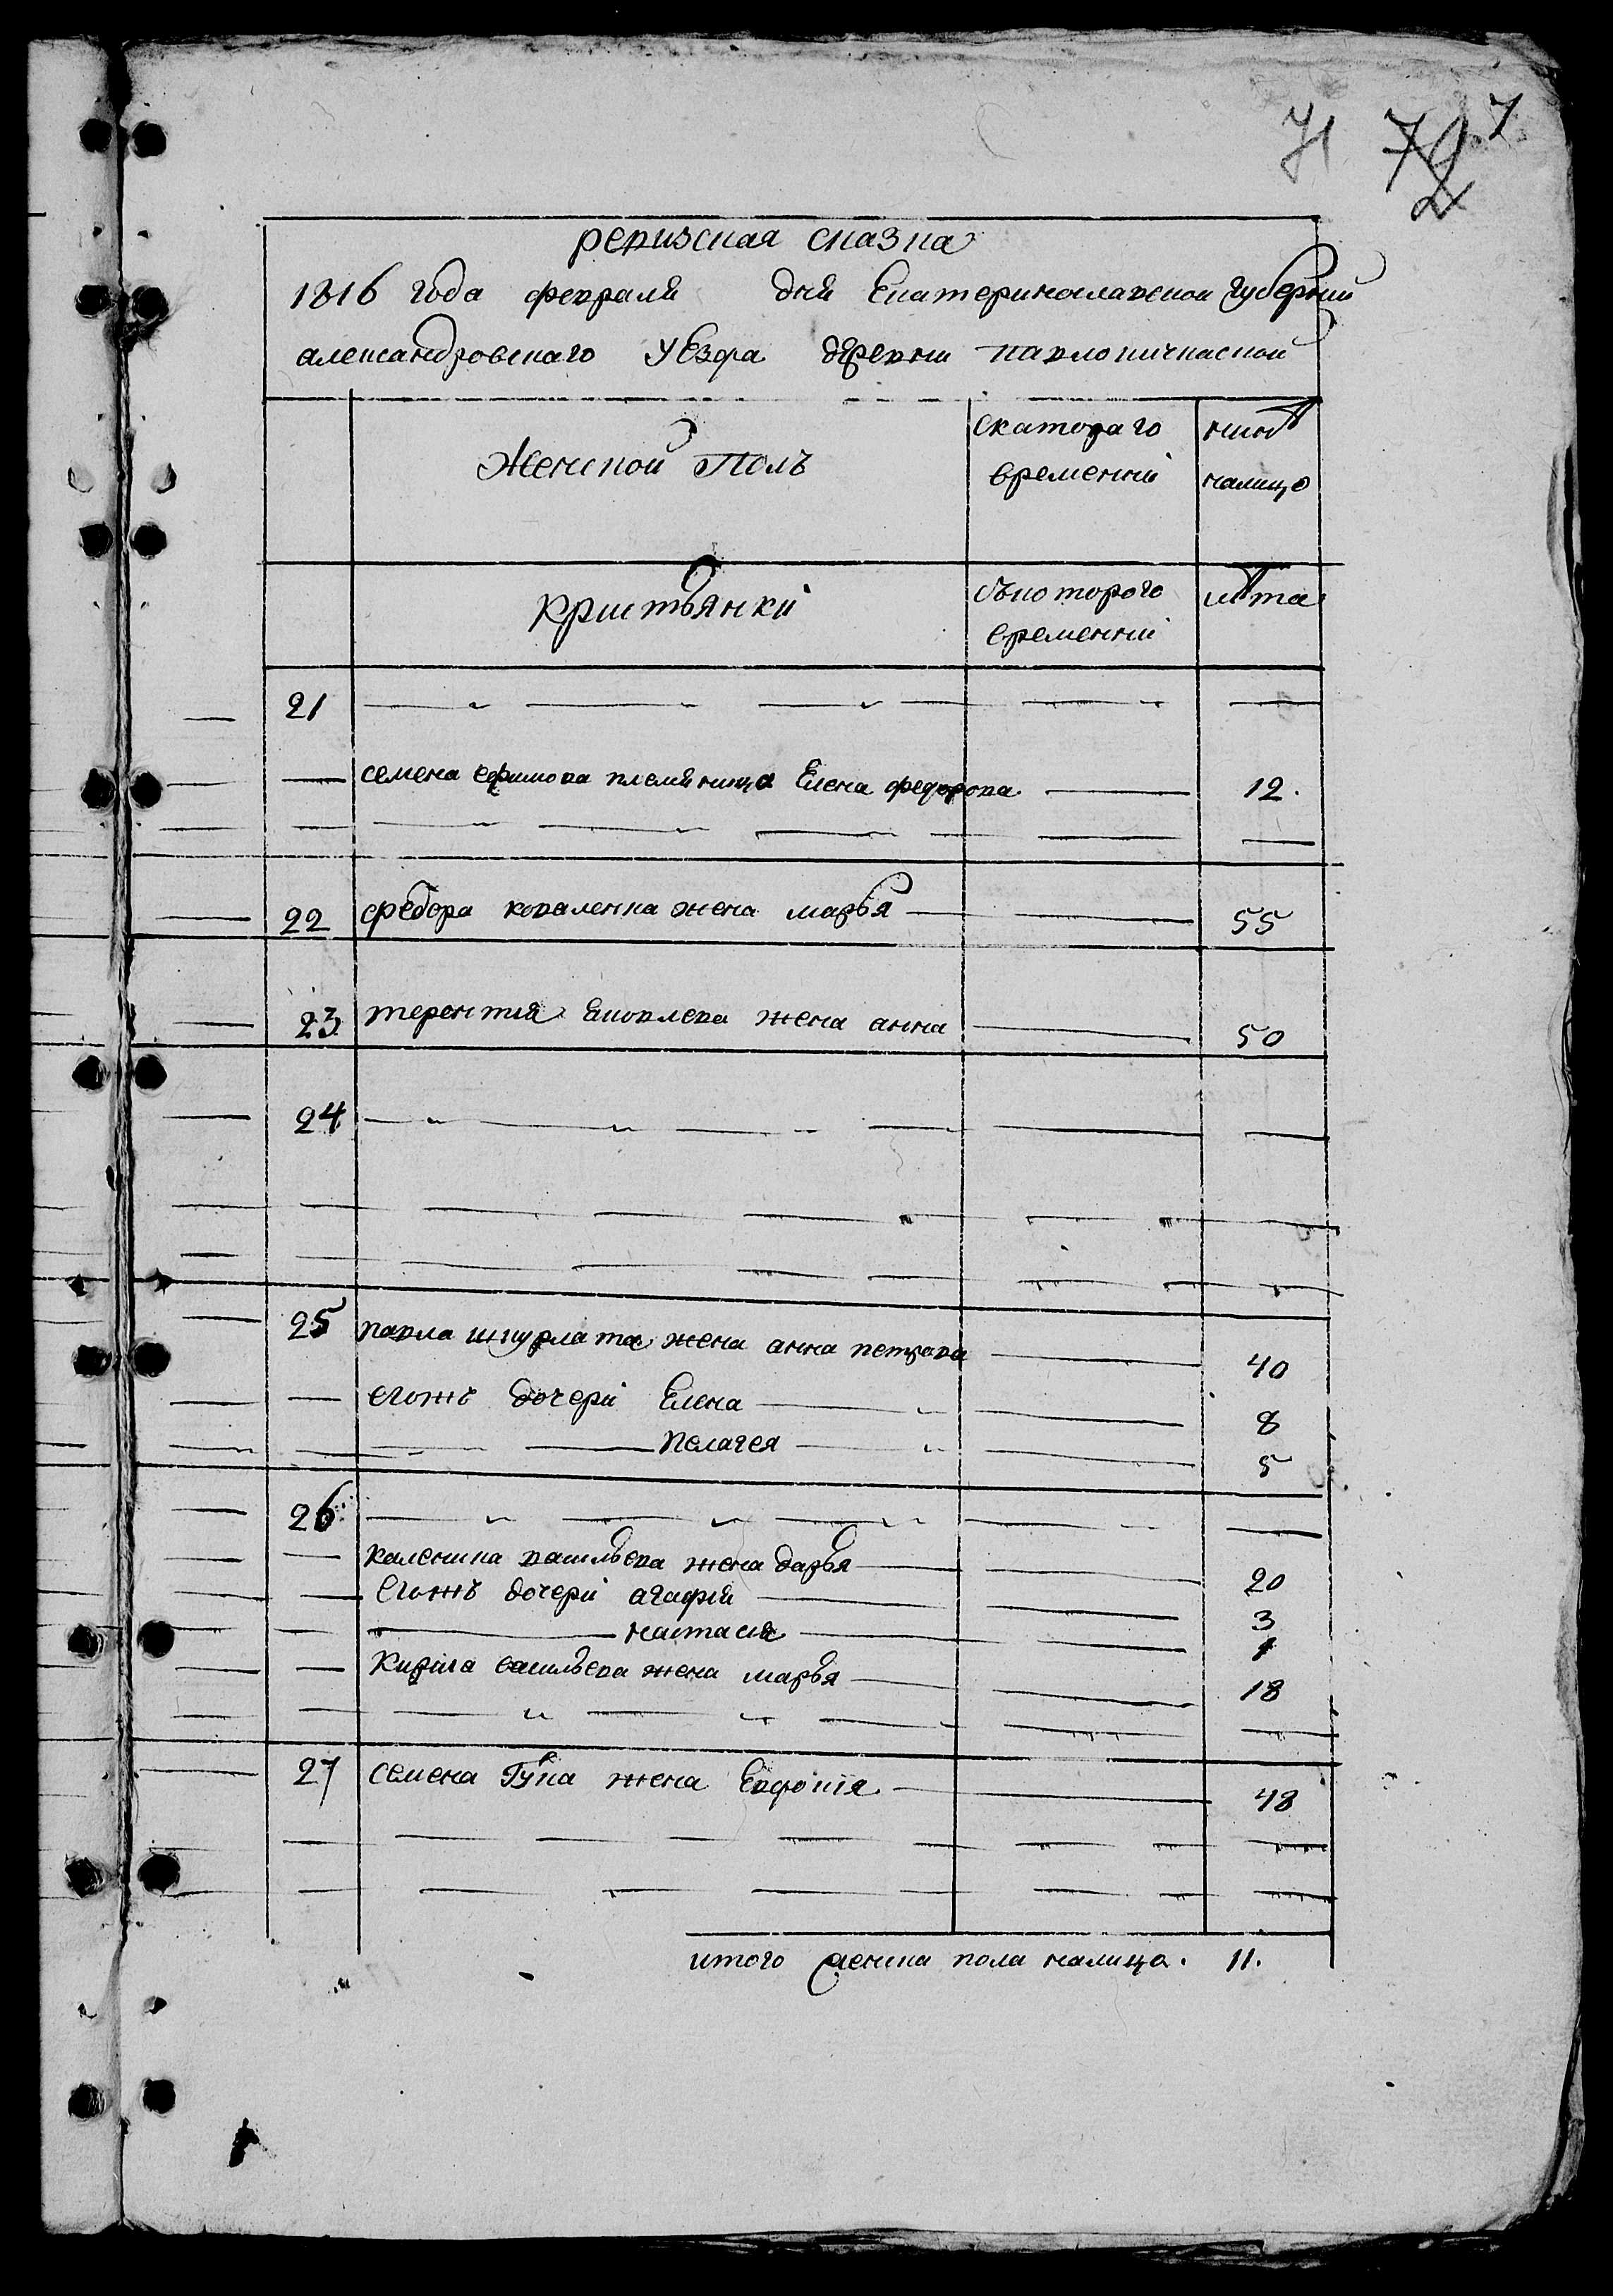 71 72 7
ревизская сказка
1816 года февраля дня Екатеринославской губернии
александровскаго уезда деревни павлопичкаской
Женской Полъ
скатораго
временнй
ныне
налицо
Кристьянкй
съкоторого
временнй
лета
21
семена ефимова племяница Елена федорова 12.
22 федора коваленка жена марья 55
23 терентия Яковлева жена анна 50
24
25 павла шкурлата жена анна петрова 40
егожъ дочерй Елена 8
Пелагея 5
26
каленика васильева жена дарья 20
Егожъ дочерй агафия 3
настасия 1
Кирила васильева жена марья 18
27 семена Гука жена Евфоия 48
итого женска пола налицо. 11.